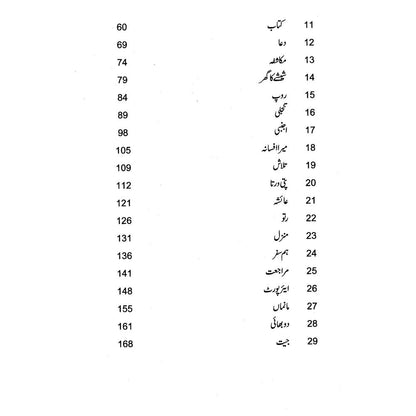 11 کتاب 60
12 دعا 69
13 مکاشفہ 74
14 شیشے کا گھر 79
15 روپ 84
16 تجلّی 89
17 اجنبی 98
18 میرا افسانہ 105
19 تلاش 109
20 پتی ورتا 112
21 عائشہ 121
22 رتو 126
23 منزل 131
24 ہم سفر 136
25 مراجعت 141
26 ایئر پورٹ 148
27 مانماں 155
28 دو بھائی 161
29 جیت 168